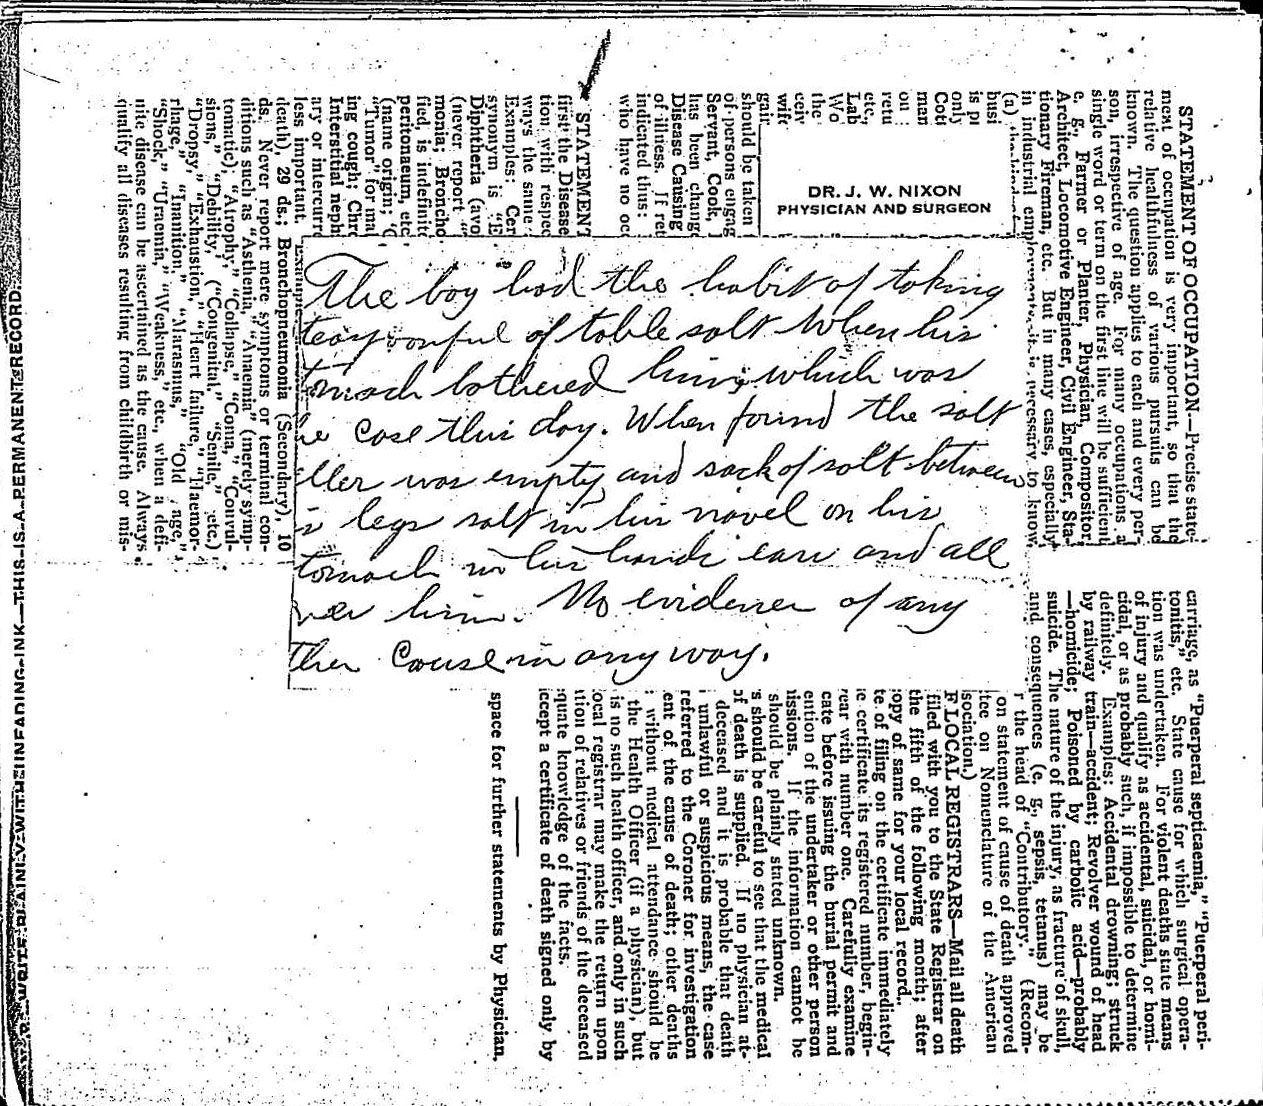 DR. J. W. NIXON
PHYSICIAN AND SURGEON
The boy had the habit of taking
teaspoonful of table salt when his
tomach bothered him, which was
he case this day. When found the salt
ller was empty and sack of salt between
is legs salt in his navel on his
tomach in his hands ears and all
ver him. No evidence of any
ther cause in any way.
STATEMENT OF OCCUPATION—Precise state-
ment of occupation is very important, so that the
relative healthfulness of various pursuits can be
known. The question applies to each and every per-
son, irrespective of age. For many occupations a
single word or term on the first line will be sufficient
e. g., Farmer or Planter, Physician, Compositor,
Architect, Locomotive Engineer, Civil Engineer, Sta-
tionary Fireman, etc. But in many cases, especially
in industrial employments, it is necessary to know
(a)
busi
is p
only
Cott
man
on
retu
etc.,
Lab
Wo
the
ceiv
wife
gair
should be taken
of persons engag
Servant, Cook,
has been change
Disease Causing
of illness. If ret
indicated thus:
who have no oc
STATEMENT
first the Disease
tion with respec
ways the same
Examples: Cer
synonym is "E
Diphtheria (avo
(never report "
monia; Broncho
fied, is indefinit
peritonaeum, etc
(name origin; (
"Tumor" for mal
ing cough; Chro
Interstitial neph
ary or intercurre
less important.
Example
death), 29 ds.; Bronchopneumonia (Secondary), 10
ds. Never report mere symptoms or terminal con-
ditions such as "Asthenia," "Anaemia" (merely symp-
tomatic); "Atrophy," "Collapse," "Coma," "Convul-
sions," "Debility," ("Congenital," "Senile," etc.)
"Dropsy," "Exhaustion," "Heart failure," "Haemor-
rhage," "Inanition," "Marasmus," "Old age,"
"Shock," "Uraemia," "Weakness," etc., when a defi-
nite disease can be ascertained as the cause. Always
qualify all diseases resulting from childbirth or mis-
carriage, as "Puerperal septicaemia," "Puerperal peri-
tonitis," etc. State cause for which surgical opera-
tion was undertaken. For violent deaths state means
of injury and qualify as accidental, suicidal, or homi-
cidal, or as probably such, if impossible to determine
definitely. Examples: Accidental drowning; struck
by railway train—accident; Revolver wound of head
—homicide; Poisoned by carbolic acid—probably
suicide. The nature of the injury, as fracture of skull,
and consequences (e. g., sepsis, tetanus) may be
r the head of "Contributory." (Recom-
on statement of cause of death approved
tee on Nomenclature of the American
sociation.)
F LOCAL REGISTRARS—Mail all death
filed with you to the State Registrar on
the fifth of the following month; after
opy of same for your local record.
te of filing on the certificate immediately
e certificate its registered number, begin-
year with number one. Carefully examine
cate before issuing the burial permit and
ention of the undertaker or other person
issions. If the information cannot be
should be plainly stated unknown.
s should be careful to see that the medical
of death is supplied. If no physician at-
deceased and it is probable that death
unlawful or suspicious means, the case
referred to the Coroner for investigation
ent of the cause of death; other deaths
without medical attendance should be
the Health Officer (if a physician), but
is no such health officer, and only in such
ocal registrar may make the return upon
tion of relatives or friends of the deceased
quate knowledge of the facts.
ccept a certificate of death signed only by
space for further statements by Physician.
WRITE PLAINLY WITH UNFADING INK—THIS IS A PERMANENT RECORD